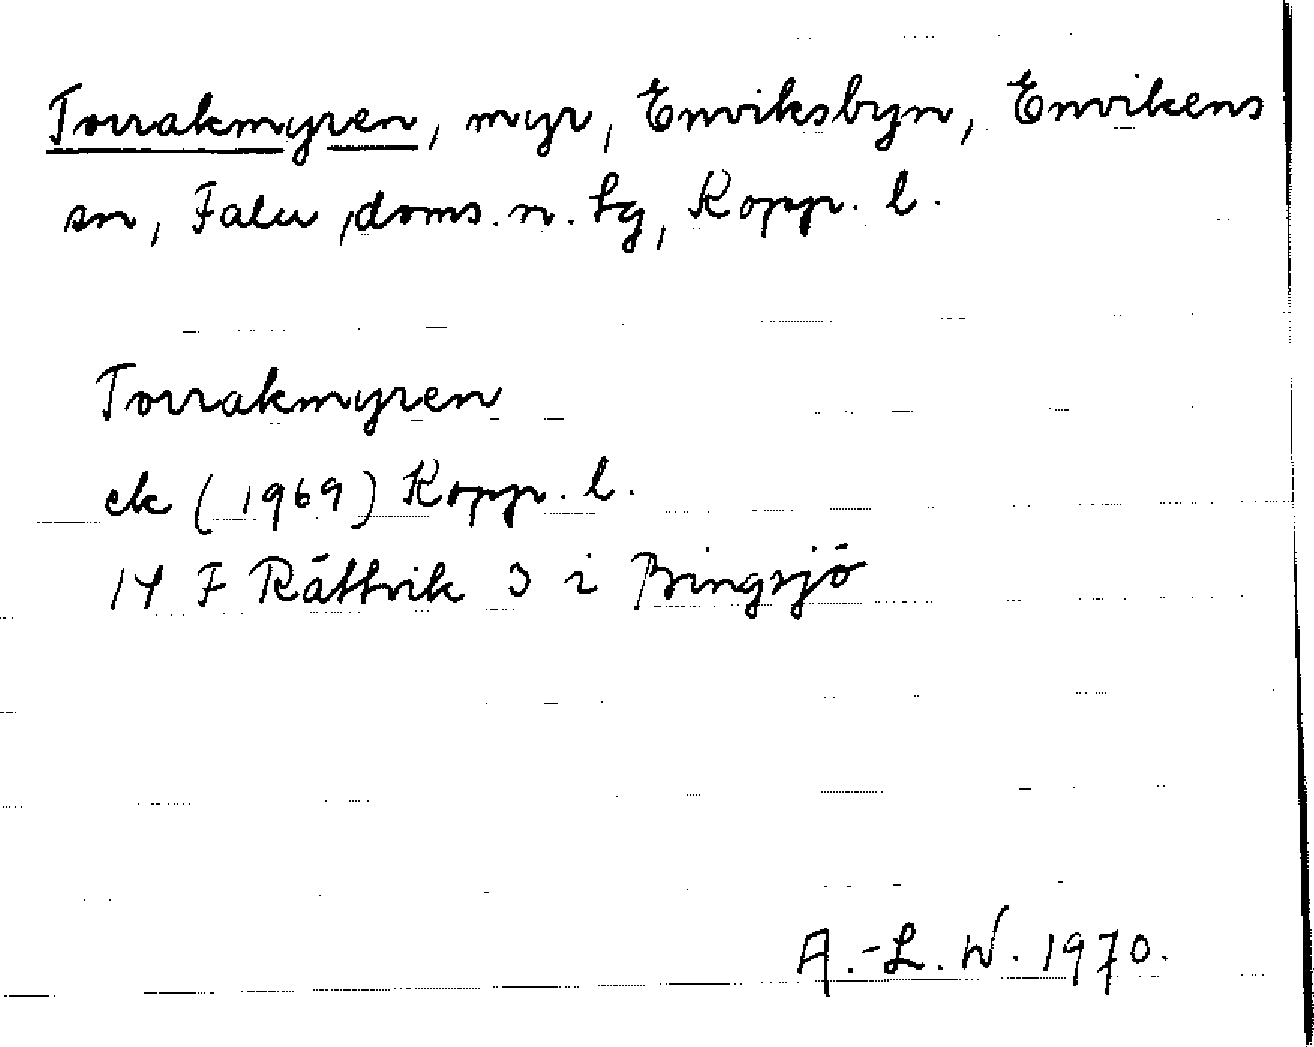 Torrakmyren, myr, Enviksbyn, Envikens
sn, Falu doms. n. tg, Kopp. l.
Torrakmyren
ek (1969) Kopp. l.
14 F Rättvik 3 i Bingsjö
A.-L. W. 1970.